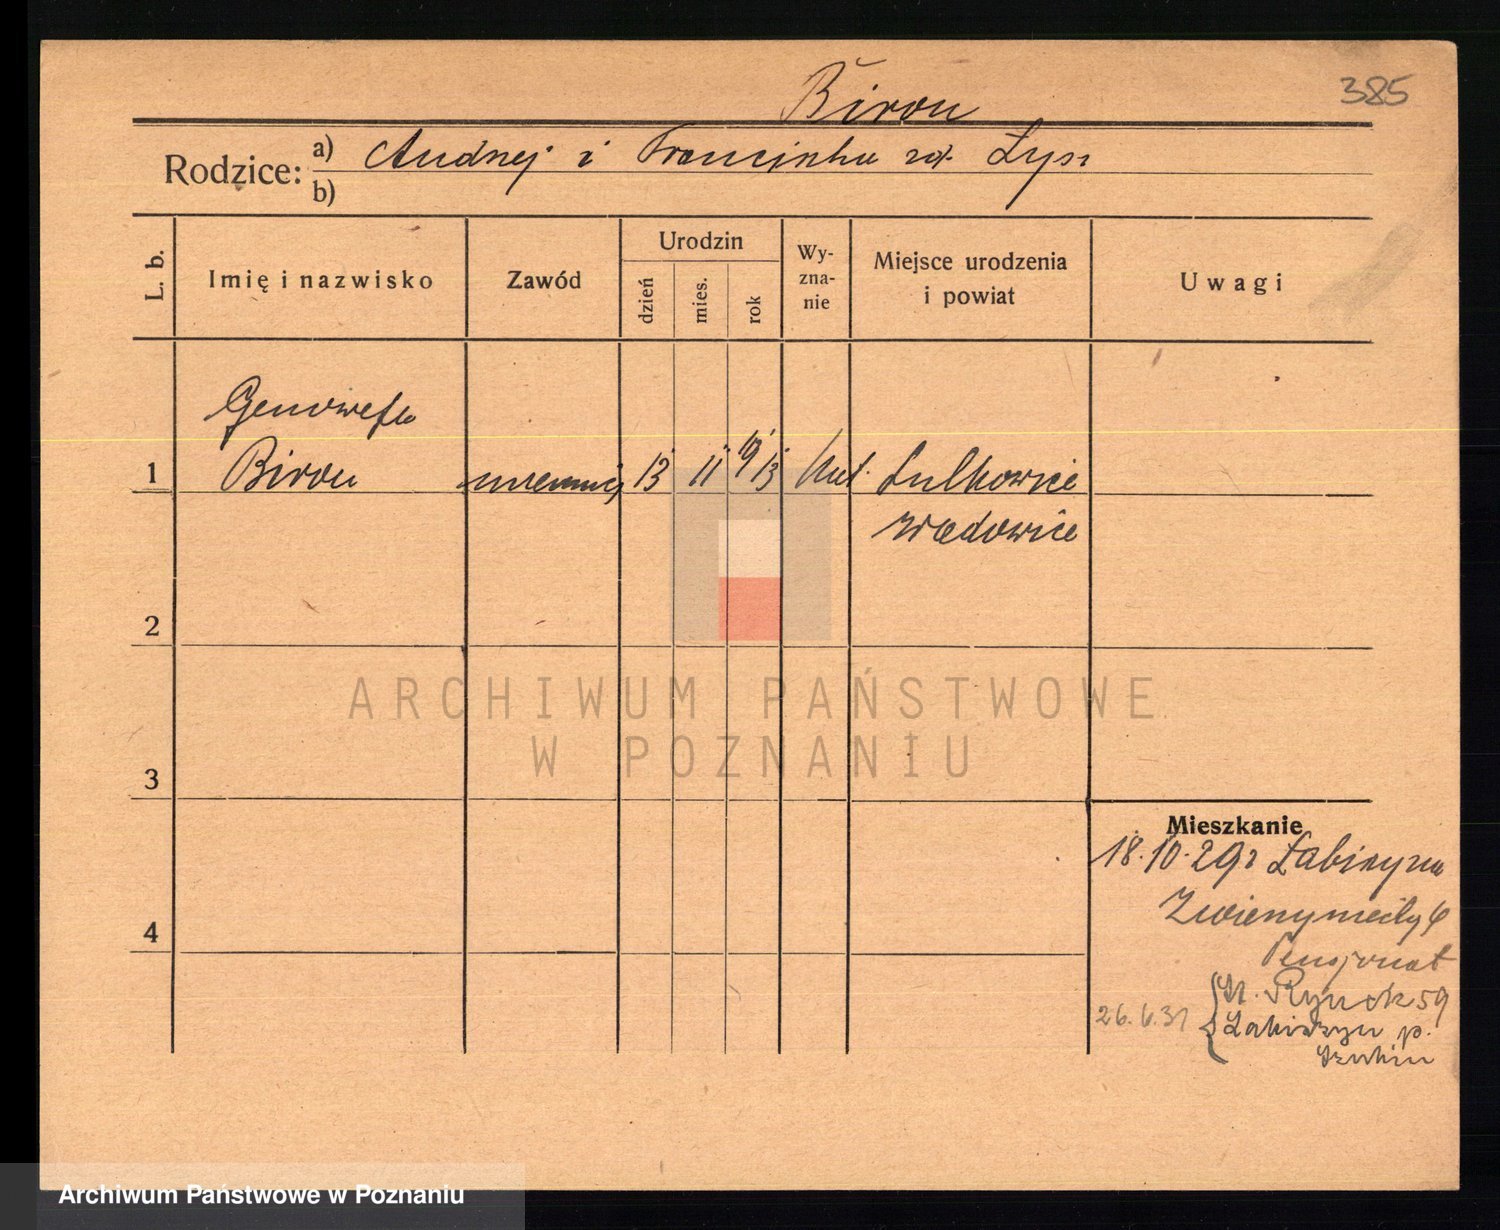 Biron
385
Rodzice: a) Andrzej i Franciszka zd. Łysz
b)
L. b.
Imię i nazwisko
Zawód
Urodzin
dzień
mies.
rok
Wy-
zna-
nie
Miejsce urodzenia
i powiat
Uwagi
Genowefa
1 Biron 13 11 19/13 kat. Sułkowice
Wadowice
2
3
4
Mieszkanie
18.10.29r Łabiszyn
6
Pensjonat
26.6.31 St. Rynek 59
Łabiszyn p.
Szubin
ARCHIWUM PAŃSTWOWE
W POZNANIU
Archiwum Państwowe w Poznaniu